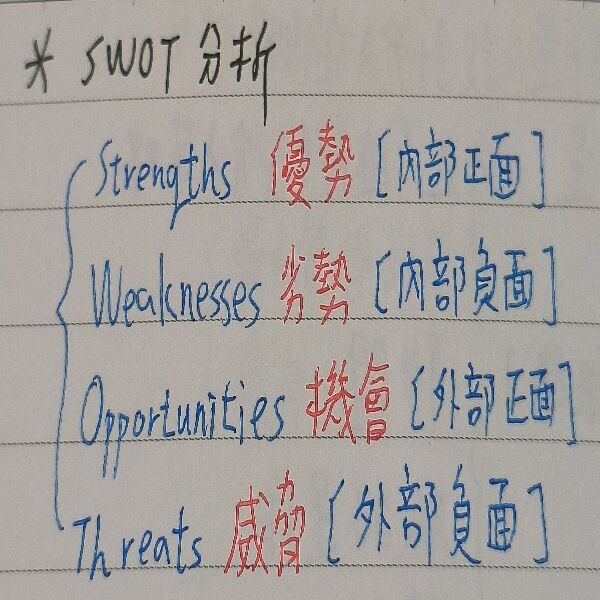 * SWOT 分析
Strengths 優勢 [內部正面]
Weaknesses 劣勢 [內部負面]
Opportunities 機會 [外部正面]
Threats 威脅 [外部負面]